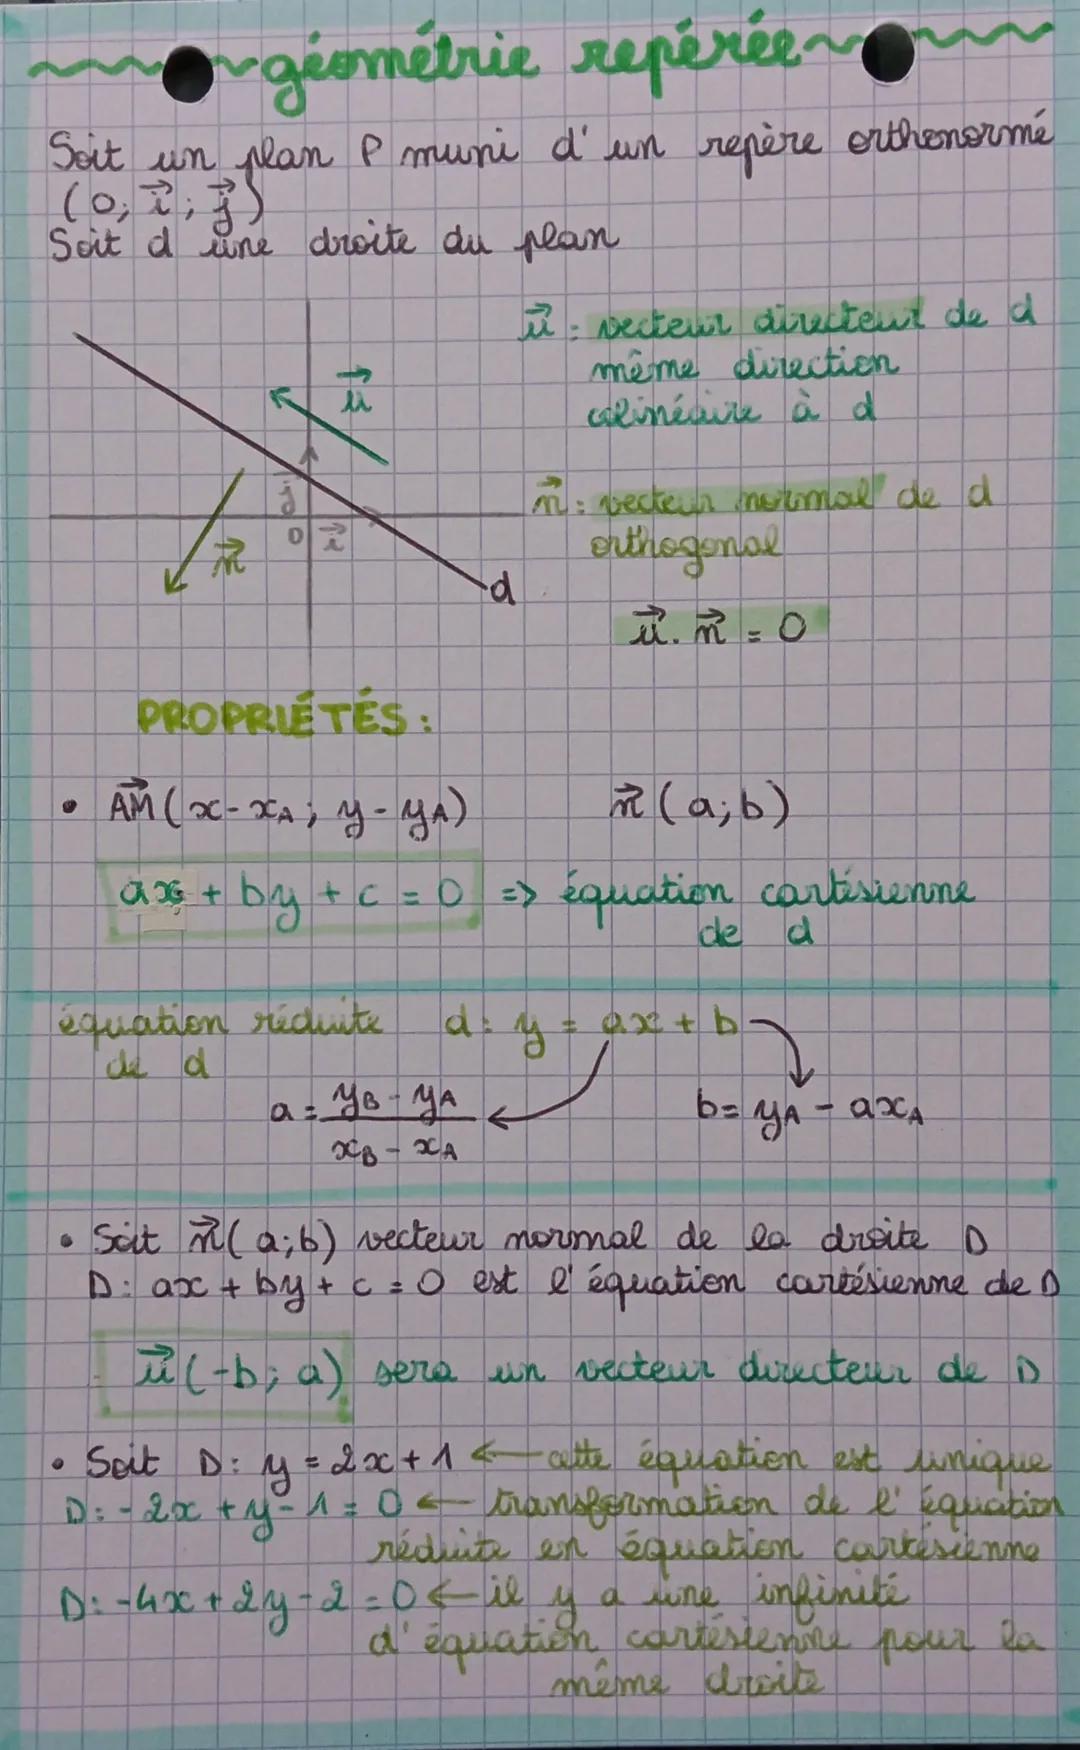 géométrie repérée
Soit un plan P muni d'un repère orthonormé
(O; i⃗; j⃗)
Soit d une droite du plan
u⃗ : vecteur directeur de d
même direction
colinéaire à d
u⃗
j⃗
n⃗ : vecteur normal de d
orthogonal
O i⃗
n⃗
d
u⃗. n⃗ = 0
PROPRIÉTÉS :
• AM⃗ (x-xA; y-yA) n⃗ (a;b)
ax + by + c = 0 => équation cartésienne
de d
équation réduite d: y = ax + b
de d
a = (yB - yA)/(xB - xA) b= yA - axA
• Soit n⃗(a;b) vecteur normal de la droite D
D: ax + by + c = 0 est l'équation cartésienne de D
u⃗(-b; a) sera un vecteur directeur de D
• Soit D: y = 2x+1 ← cette équation est unique
D: -2x + y - 1 = 0 ← transformation de l'équation
réduite en équation cartésienne
D: -4x + 2y - 2 = 0 ← il y a une infinité
d'équation cartésienne pour la
même droite